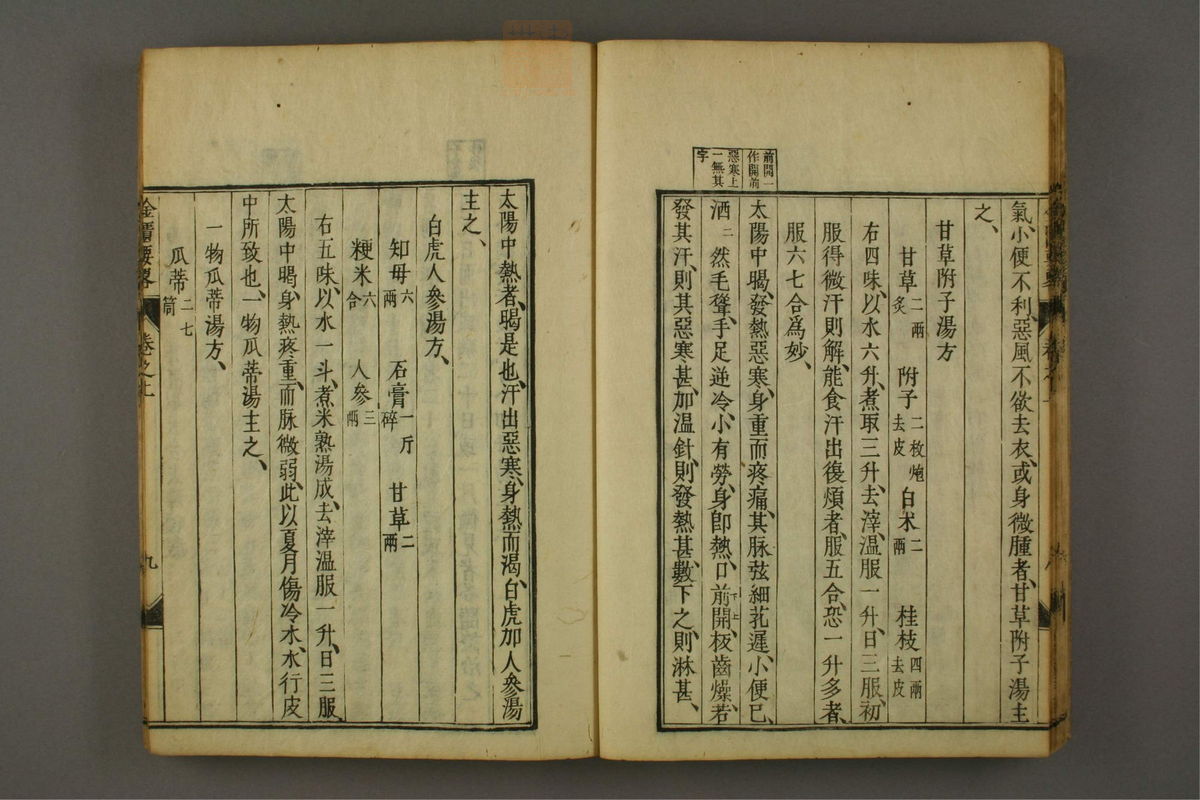 前開一
作開前
惡寒上
一無其
字
氣小便不利、惡風不欲去衣、或身微腫者、甘草附子湯主
之、
甘草附子湯方
甘草二兩炙 附子二枚炮去皮 白术二兩 桂枝四兩去皮
右四味、以水六升、煮取三升、去滓、溫服一升、日三服、初
服得微汗則解、能食汗出後煩者、服五合、恐一升多者、
服六七合爲妙、
太陽中暍、發熱惡寒、身重而疼痛、其脉弦細芤遲、小便已、
洒二然毛聳、手足逆冷、小有勞、身卽熱、口前下開上、板齒燥、若
發其汗、則其惡寒甚、加溫針、則發熱甚、數下之、則淋甚、
太陽中熱者、暍是也、汗出惡寒、身熱而渴、白虎加人參湯
主之、
白虎人參湯方、
知母六兩 石膏一斤碎 甘草二兩
粳米六合 人參三兩
右五味、以水一斗、煮米熟湯成、去滓、溫服一升、日三服、
太陽中暍、身熱疼重、而脉微弱、此以夏月傷冷水、水行皮
中所致也、一物瓜蒂湯主之、
一物瓜蒂湯方、
瓜蒂二七箇
金匱要畧 卷之上 九